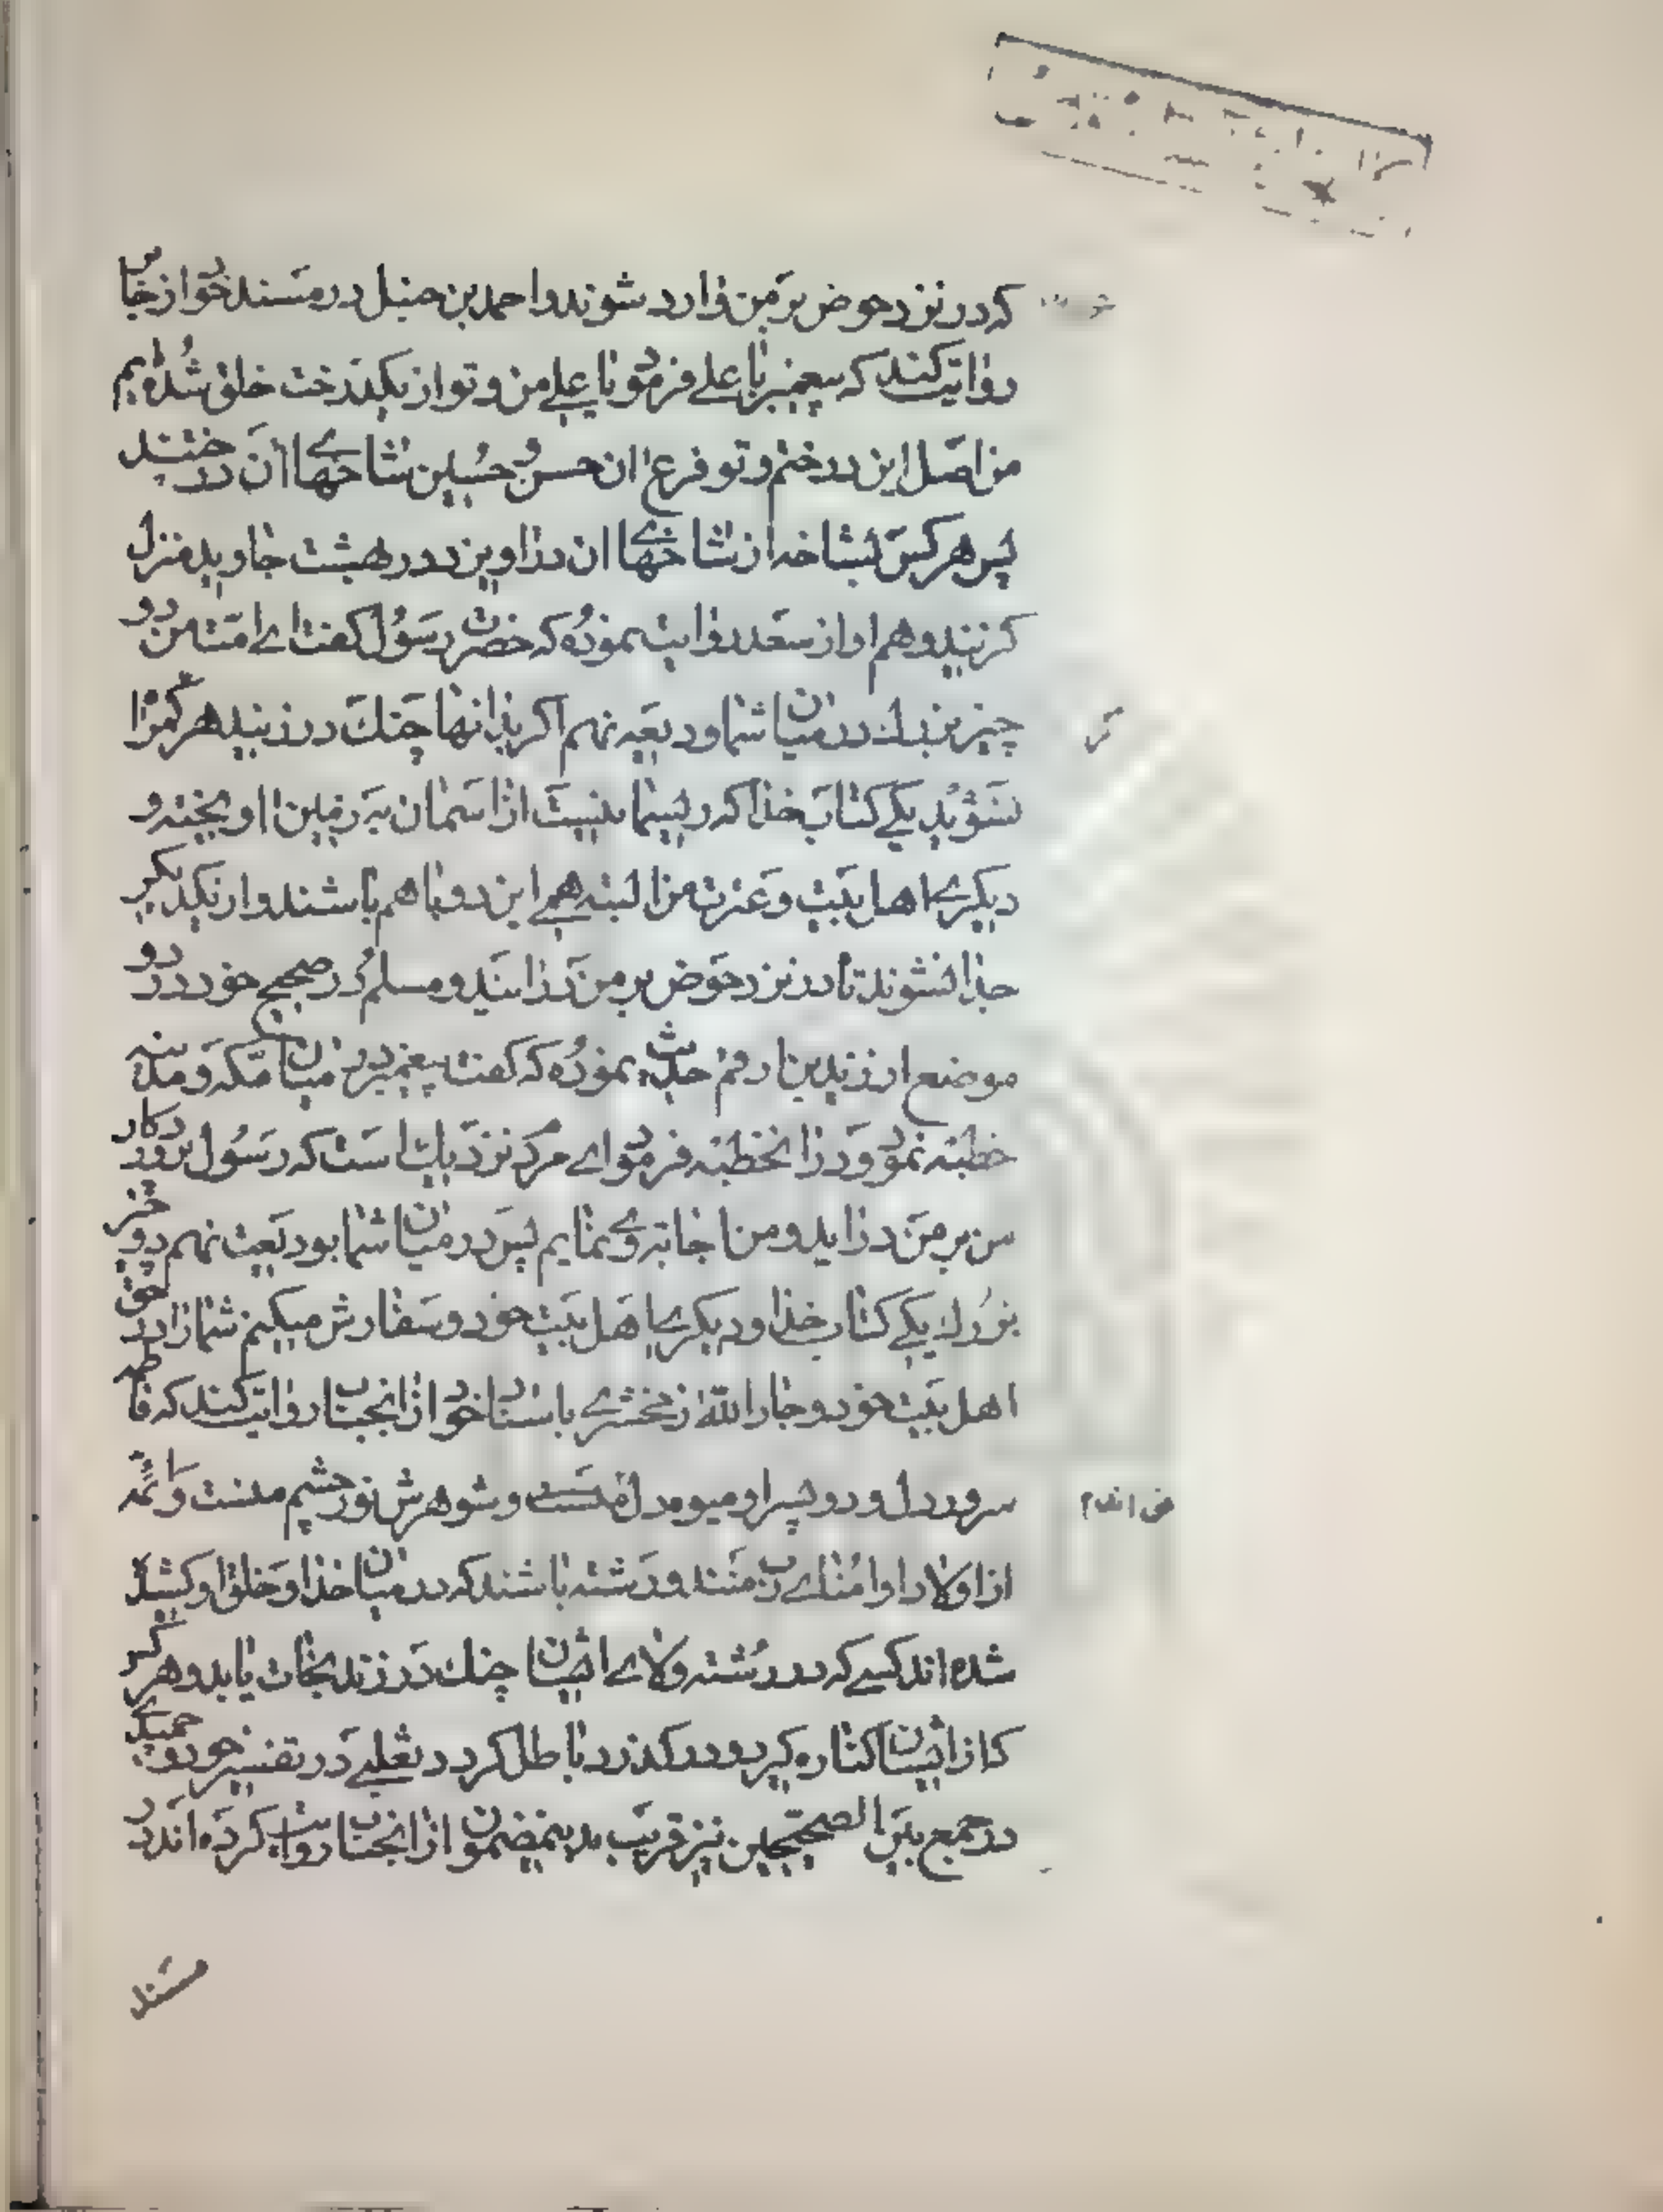 که در نزد حوض بر من وارد شوند و احمد بن حنبل در مسند خود از جابر
روایت کند که پیغمبر با علی فرمود یا علی من و تو از یکدرخت خلق شده ایم
من اصل این درختم و تو فرع ان حسن و حسین شاخهای آن درختند
پس هر کس بشاخه از شاخهای ان دراویزد در بهشت جاوید منزل
کزیند و هم او از سعد روایت نموده که حضرت رسول کفت ای امت من دو
چیز بزرك در میان شما ودیعه نهم اکر بدانها چنك در زنید هرکز کمراه
نشوید یکی کتاب خدا که ریسمانیست از اسمان به زمین اویخته و
دیکری اهل بیت و عترت من البته همی این دو با هم باشند و از یکدیکر
جدا نشوند تا در نزد حوض بر من درایند و مسلم در صحیح خود در دو
موضع از زید بن ارقم حدیث نموده که کفت پیغمبر در میان مکه و مدینه
خطبه نمود و در انخطبه فرمود ای مردم نزدیك است که رسول پروردکار
من بر من دراید و من اجابت وی نمایم پس در میان شما بودیعت نهم دو چیز
بزرك یکی کتاب خدا و دیکری اهل بیت خود و سفارش میکنم شما را در حق
اهل بیت خود و جار الله زمخشری باسناد خود از انجناب روایت کند که فاطمه
سرور دل و دو پسر او میوه دل منست و شوهرش نور چشم منست و ائمه
از اولاد او امنای رب منند و رشته باشند که در میان خدا و خلق او کشیده
شده اند کسی که در رشته ولای ایشان چنك در زند نجات یابد و هر کس
که از ایشان کناره کیرد و در کذرد باطل کردد ثعلبی در تفسیر خود و حمیدی
در جمع بین الصحیحین نیز قریب بدینمضمون از انجناب روایت کرده اند در
مسند